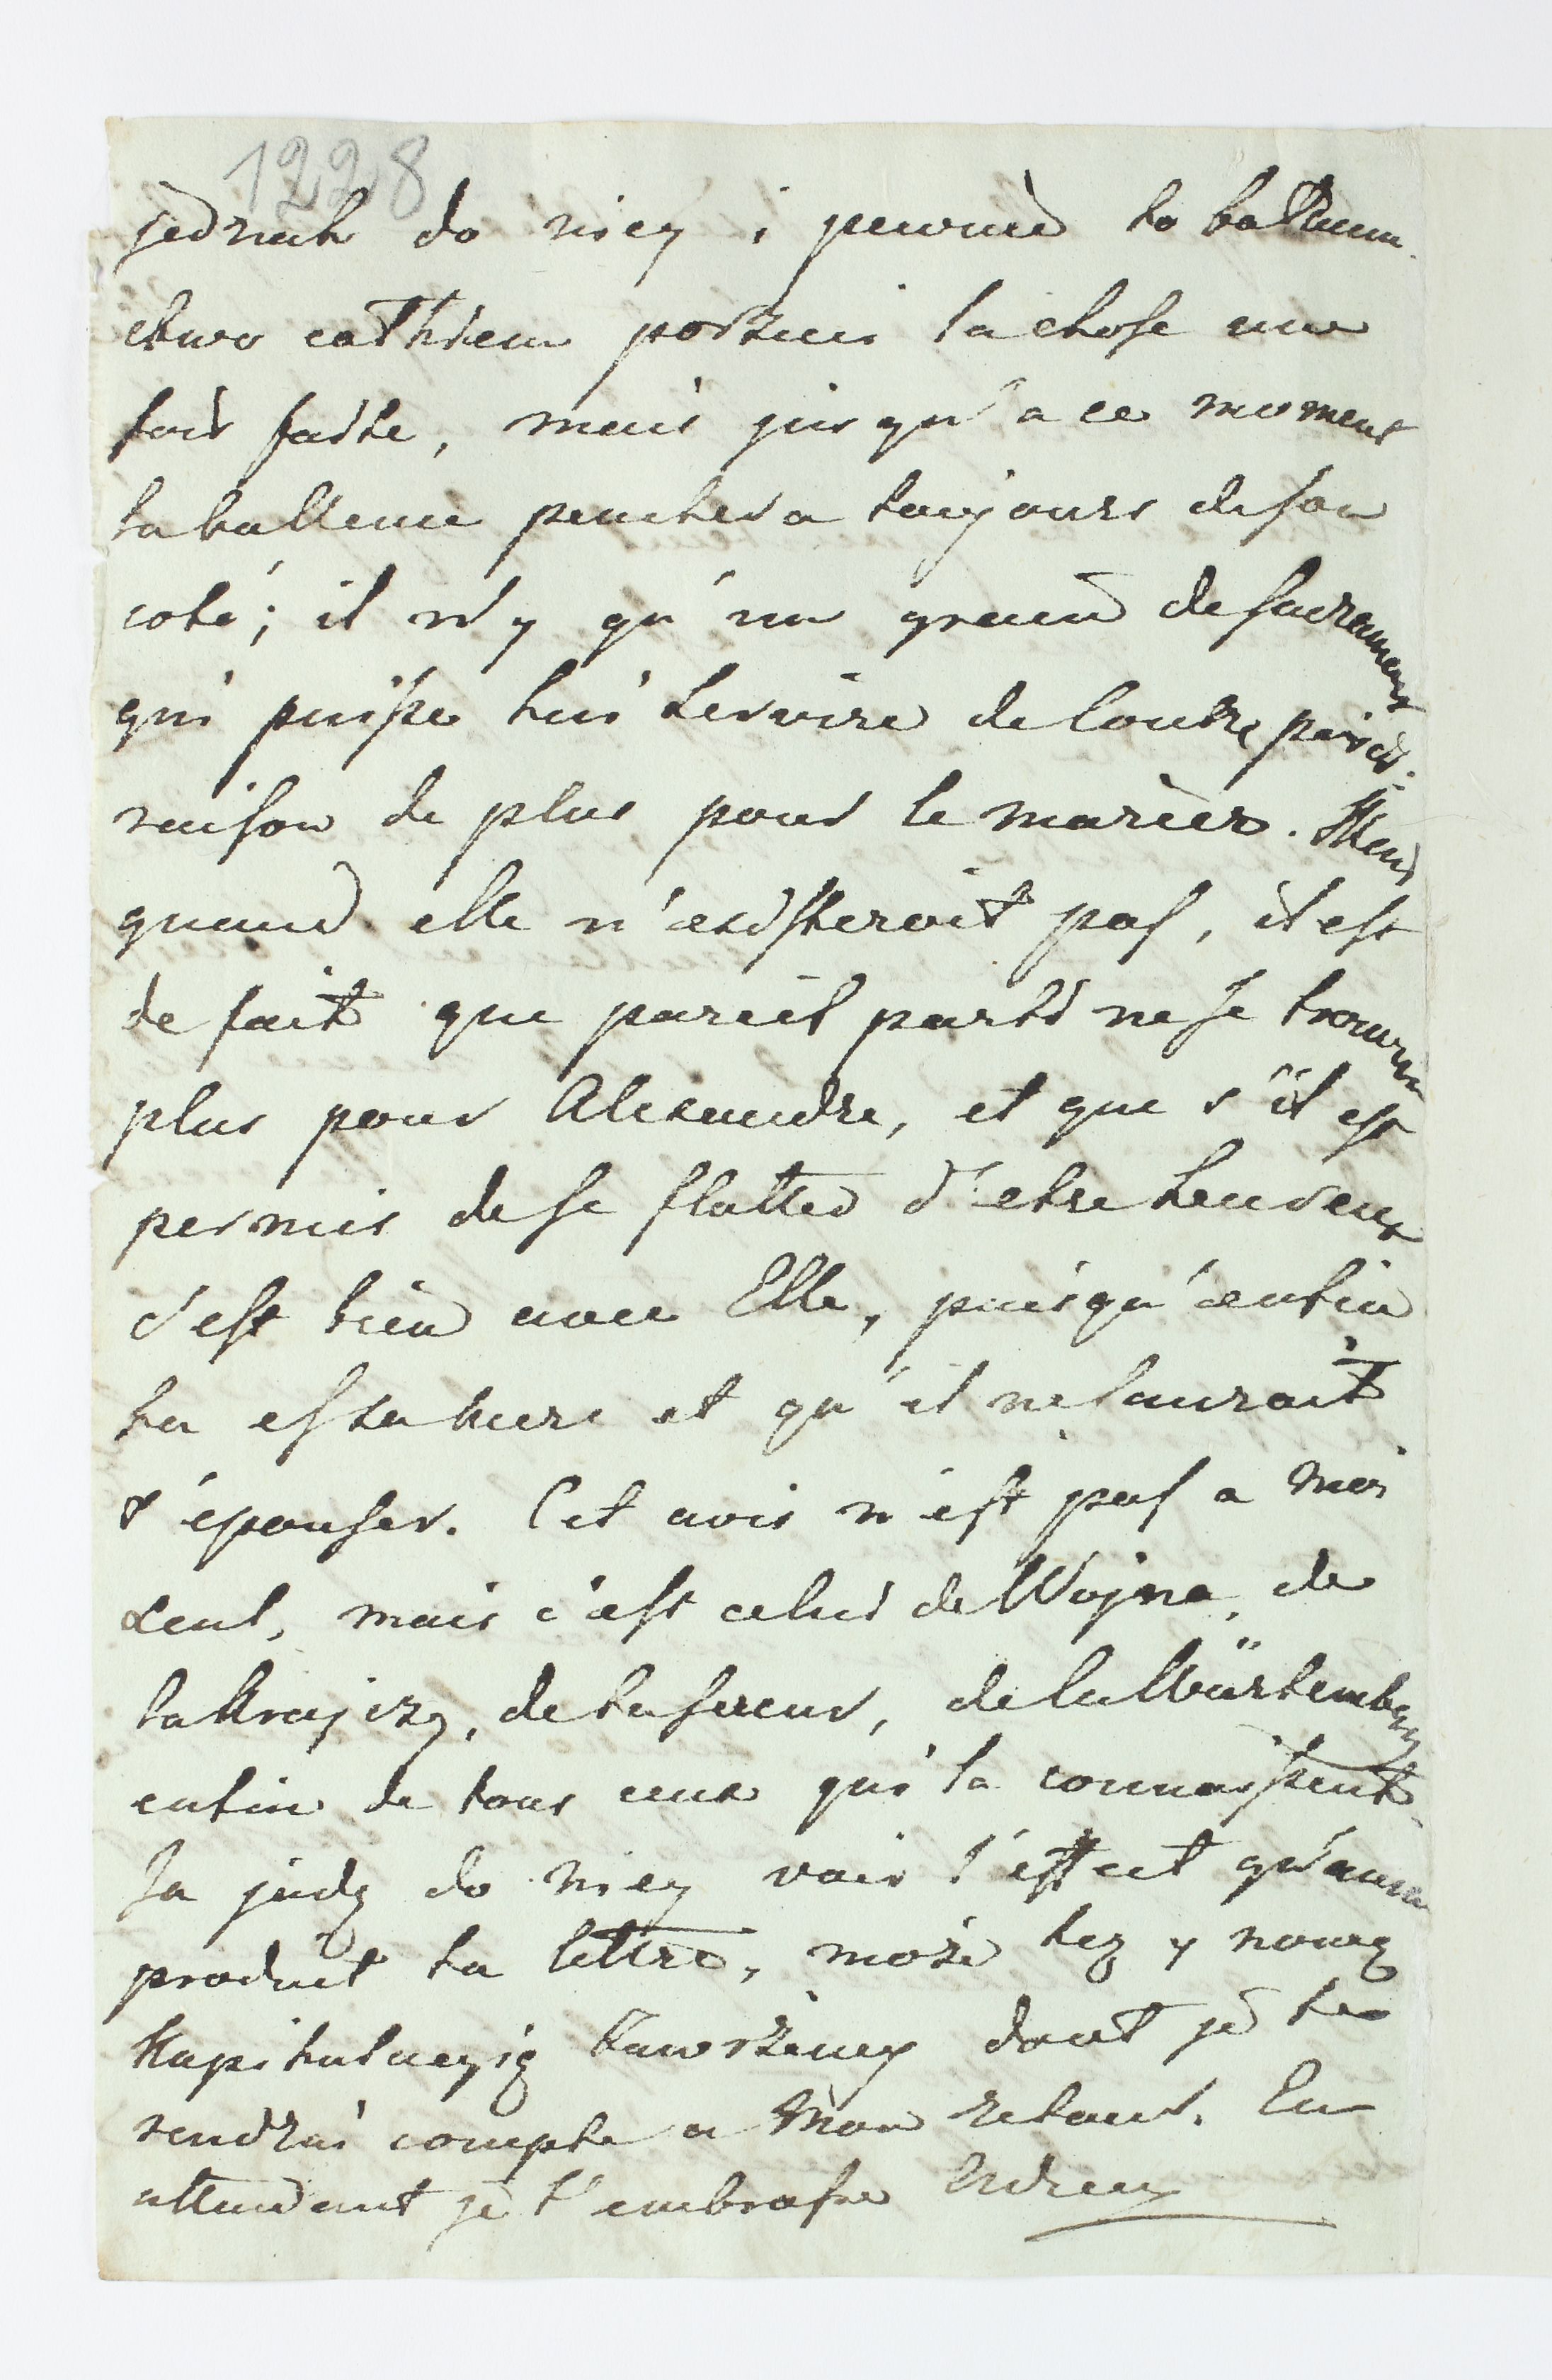 1228
jednak do niey i pewnie to
łatwo całkiem porzuci la chose une
fois faite, mais jusqu'a ce moment
la ballence penchera toujours de son
coté; il n'y qu'un grand de sacrement
qui puisse lui servire de contre poids.
raison de plus pour le marièr. Mem
quand elle n'existeroit pas, il est
de fait que pareil parti ne se trouvera
plus pour Alexandre, et que s'il est
permis de se flatter d'etre heureux
c'est bien avec Elle, puisqu'enfin
tu es sa bure et qu'il ne sauroit
t'épouser. Cet avis n'est pas a moi
seul, mais c'est celui de Wojna, de
la Krajczy, de ta soeur, de la Würtemberg
enfin de tous ceux qui la connoissent.
Ja jadę do niey voir l'effect qu'aura
produit ta lettre, może też y nową
Kapitulacyią dont je te
rendrai compte a mon retour. En
attendant je t'embrasse Andrzey